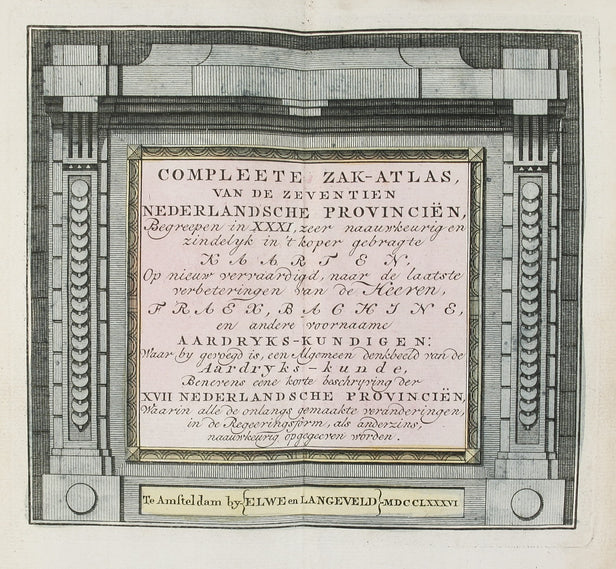 COMPLEETE ZAK-ATLAS,
VAN DE ZEVENTIEN
NEDERLANDSCHE PROVINCIËN,
Begreepen in XXXI, zeer naauwkeurig en
zindelyk in 't koper gebragte
KAARTEN,
Op nieuw vervaardigd, naar de laatste
verbeteringen van de Heeren,
FRAEX, BACHINE,
en andere voornaame
AARDRYKS-KUNDIGEN:
Waar by gevoegd is, een Algemeen denkbeeld van de
Aardryks-kunde,
Benevens eene korte beschryving der
XVII NEDERLANDSCHE PROVINCIËN,
Waarin alle de onlangs gemaakte veranderingen,
in de Regeeringsform, als anderzins,
naauwkeurig opgegeeven worden.
Te Amsteldam by {ELWE en LANGEVELD} MDCCLXXXVI